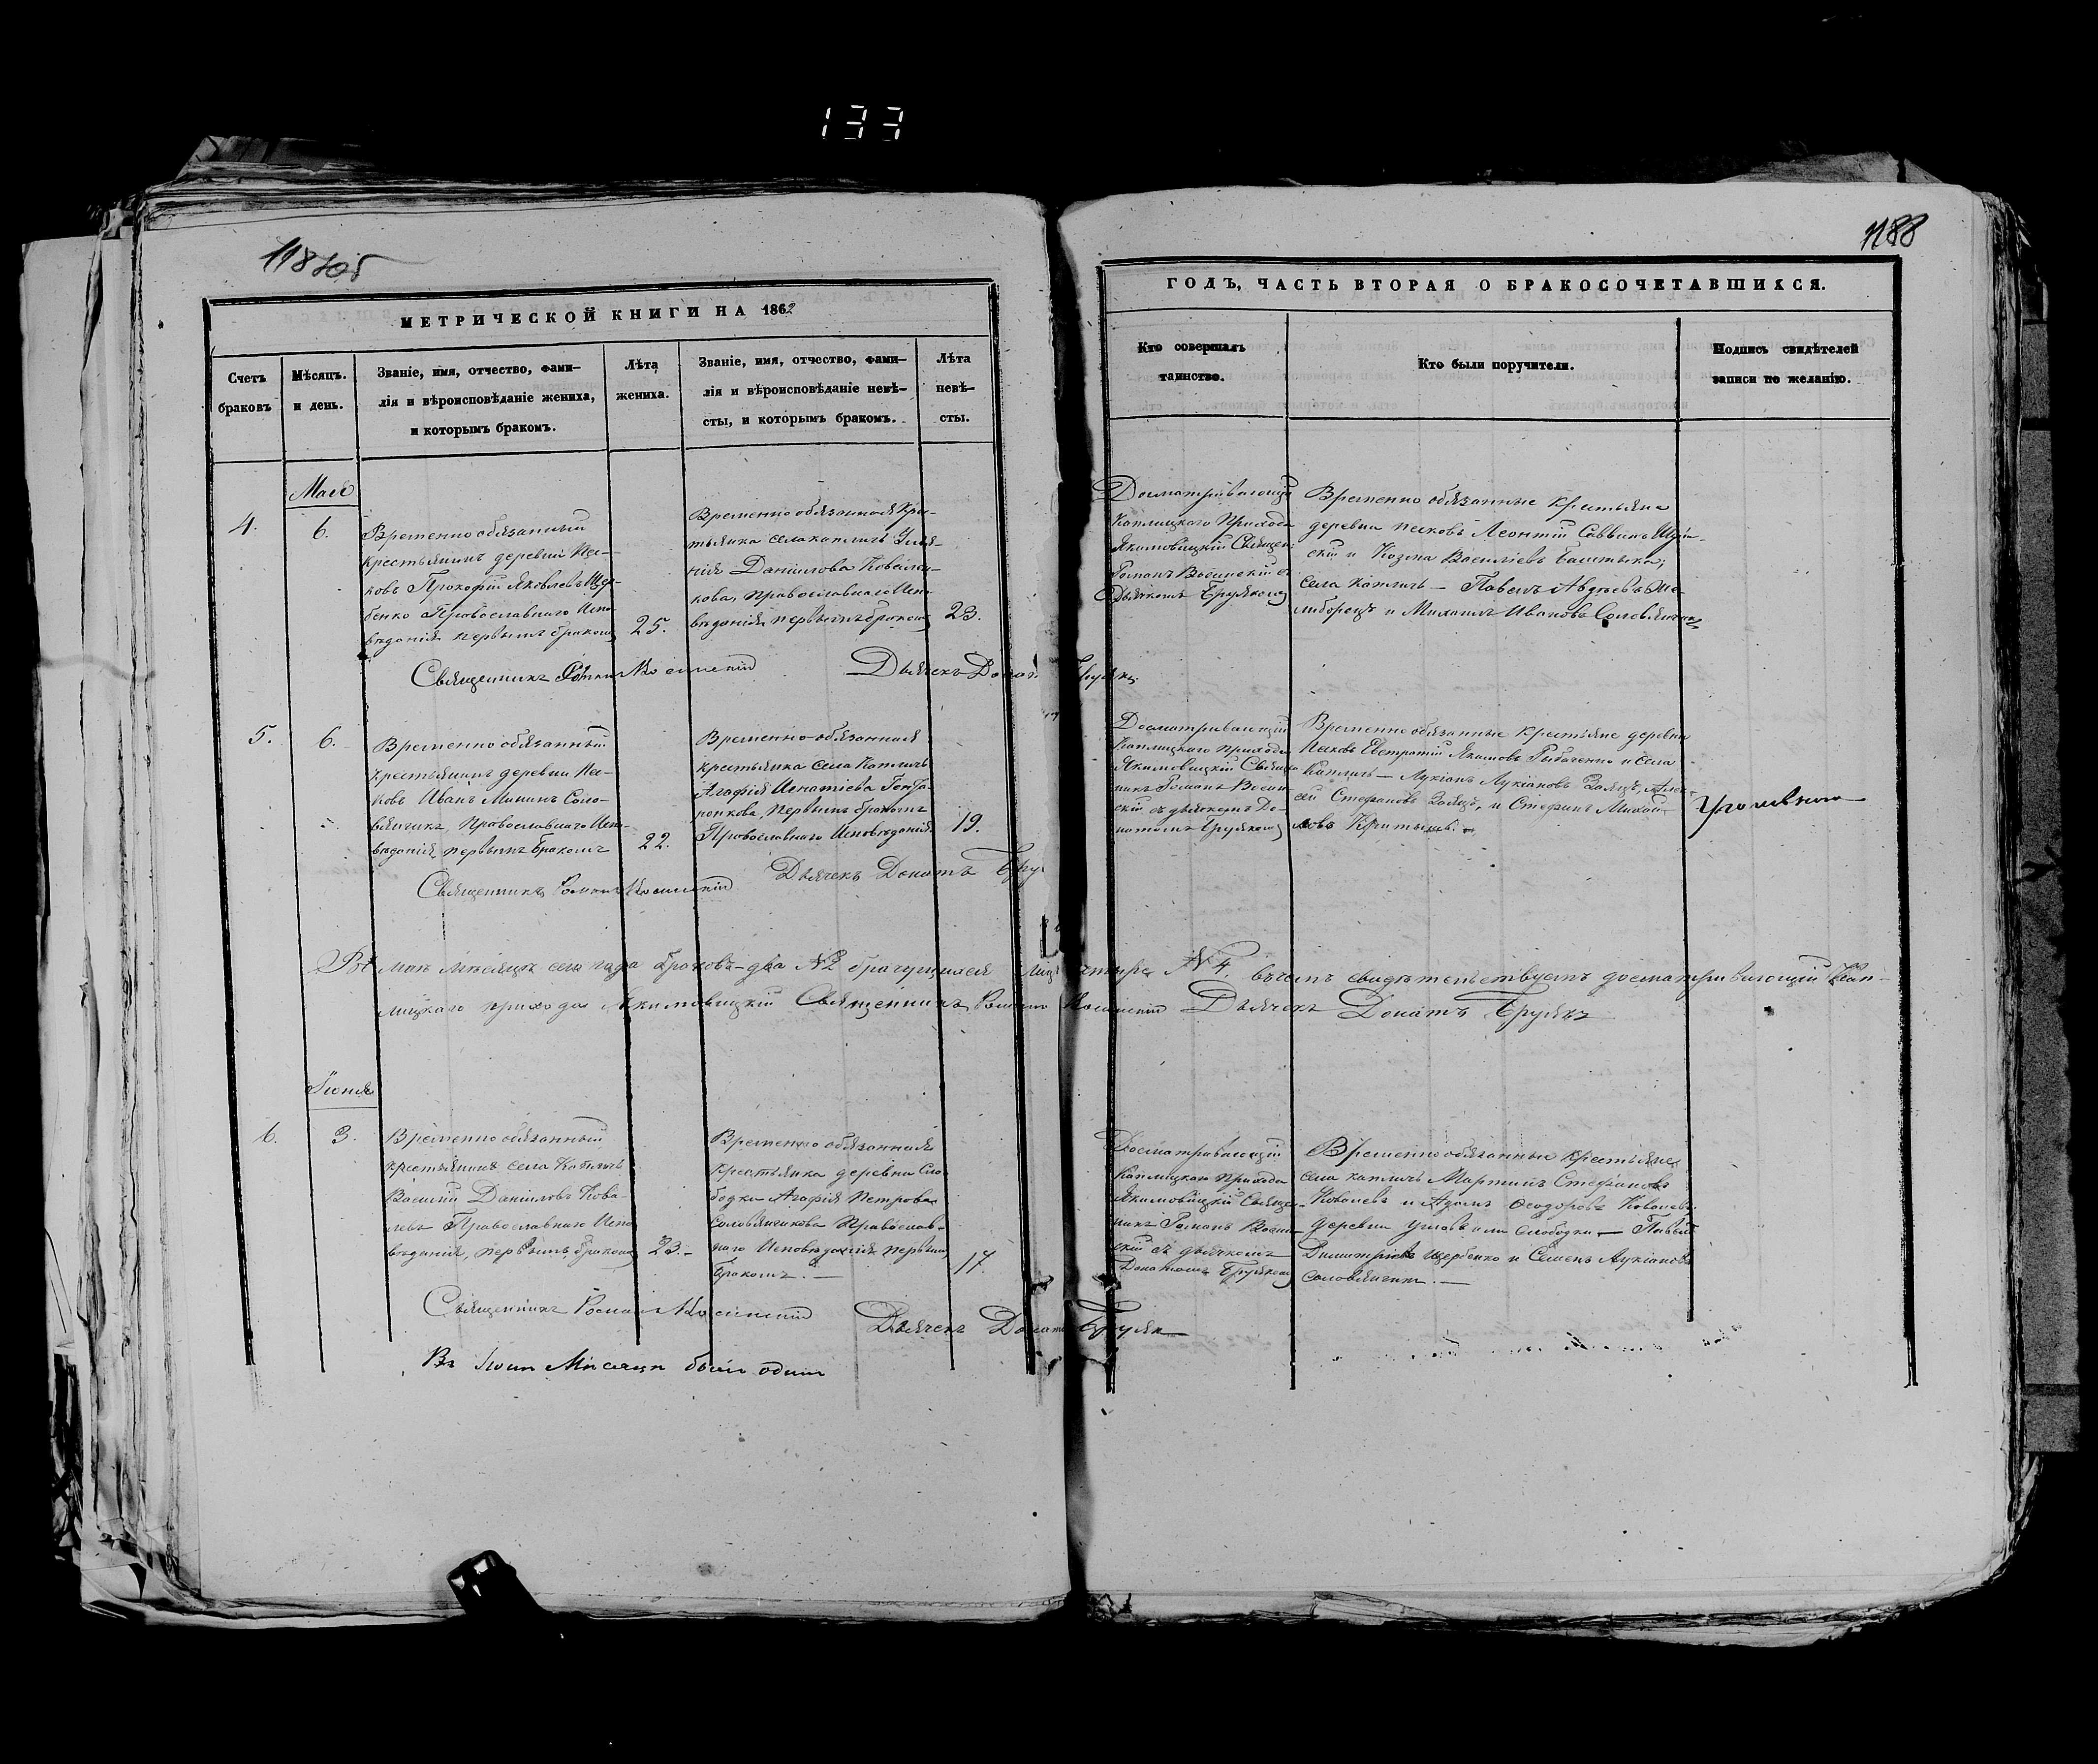 133
1188
МЕТРИЧЕСКОЙ КНИГИ НА 1862
ГОДЪ, ЧАСТЬ ВТОРАЯ О БРАКОСОЧЕТАВШИХСЯ.
Счетъ
браковъ
Мѣсяцъ.
и день.
Званіе, имя, отчество, фами-
лія и вѣроисповѣданіе жениха,
и которымъ бракомъ.
Лѣта
жениха.
Званіе, имя, отчество, фами-
лія и вѣроисповѣданіе невѣ-
сты, и которымъ бракомъ.
Лѣта
невѣ-
сты.
Кто совершалъ
таинство.
Кто были поручители.
Подпись свидѣтелей
записи по желанію.
Мая
4.
6.
Временно обязанный
крестьянинъ деревни Пес-
ковъ Прокофій Яковлевъ Щер-
бенко Православнаго Испо-
вѣданія первымъ бракомъ
25.
Временно обязанная Кре-
стьянка села Капличъ Улья-
нія Даніилова Ковале-
кова, православнаго Испо-
вѣданія первымъ бракомъ
23.
Досматривающій
Каплицкаго Прихода
Якимовицкій Священ-
Романъ Восинскій съ
Дьячкомъ Брулькомъ
Временно обязанные Крестьяне
деревни песковъ Леонтій Саввинъ
и Козма Василіевъ
села Капличъ — Павелъ Авдѣевъ
и Михаилъ Ивановъ Соловьянчикъ
Священникъ Романъ
Дьячекъ Донатъ
5.
6.
Временно обязанный
крестьянинъ деревни Пес-
ковъ Иванъ Мининъ Соло-
вьянчикъ, Православнаго Испо-
вѣданія первымъ бракомъ
22.
Временно-обязанная
крестьянка села Капличъ
Агафія Игнатіева
первымъ бракомъ
Православнаго Исповѣданія
19.
Досматривающій
Каплицкаго прихода
Якимовицкій Священ-
никъ Романъ Восин-
скій съ дьячкомъ До-
натомъ
Временно обязанные крестьяне деревни
Песковъ Евстратій Якимовъ и села
Капличъ — Лукіанъ Лукіановъ Заяцъ, Алек-
сѣй Стефановъ Заяцъ, и Стефанъ Михай-
ловъ
Священникъ Романъ
Дьячекъ Донатъ
Въ маѣ мѣсяцѣ сего года браковъ-два №2 брачущихся лицъ четыре №4. въ чемъ свидѣтельствуетъ досматривающій Кап-
лицкаго прихода Якимовицкій Священникъ Романъ Дьячекъ Донатъ
Іюня
6.
3.
Временно обязанный
крестьянинъ села Капличъ
Василій Даніиловъ Кова-
левъ Православнаго Испо-
вѣданія, первымъ бракомъ
23.-
Временно обязанная
Крестьянка деревни Сло-
бодки Агафія Петрова
Соловьянчикова Православ-
наго Исповѣданія первымъ
бракомъ. —
17
Досматривающій
Каплицкаго Прихода
Якимовицкій Священ-
никъ Романъ Восин-
скій съ дьячкомъ
Донатомъ
Временно обязанные крестьяне
села капличъ Мартинъ Стефановъ
Ковалевъ и Адамъ Ѳеодоровъ Ковалевъ.
деревни или Слободки — Павелъ
Димитріевъ Щербенко и Семенъ Лукіановъ
Соловьянчикъ. —
Священникъ Романъ
Дьячекъ Донатъ